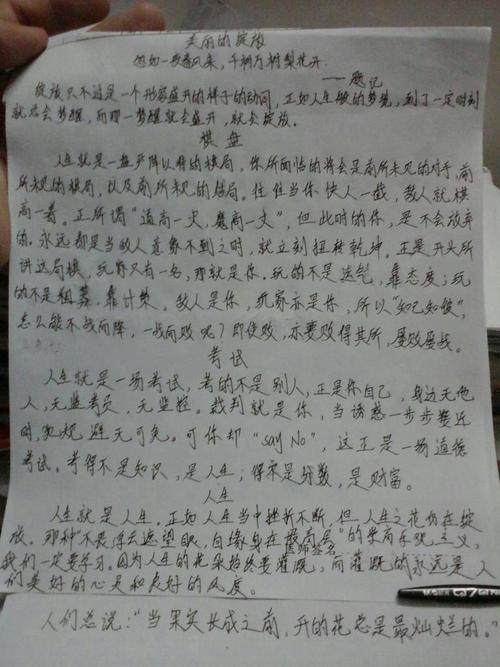 美丽的绽放
忽如一夜春风来，千树万树梨花开。
——题记
绽放只不过是一个形容盛开的样子的动词，正如人生般的梦境，到了一定时刻
就总会梦醒，而那一梦醒就会盛开，就会绽放。
棋盘
人生就是一盘严阵以待的棋局，你所面临的将会是前所未见的对手，前
所未见的棋局，以及前所未见的结局。往往当你快人一截，敌人就棋
高一着。正所谓“道高一尺，魔高一丈”，但此时的你，是不会放弃
的。永远都是当敌人意察不到之时，就立刻扭转乾坤。正是开头所
讲这局棋，玩家只有一名，那就是你。玩的不是运气，靠态度；玩
的不是粗莽，靠计策。敌人是你，玩家亦是你，所以“知己知彼”，
怎么能不战而降，一战而败呢？即使败，亦要败得其所，屡败屡战。
考试
人生就是一场考试，考的不是别人，正是你自己，身边无他
人，无监考员，无监控。裁判就是你，当诱惑一步步接近
时，犯规避无可免。可你却“say No”，这正是一场道德
考试。考得不是知识，是人生；得来是分数，是财富。
人生
人生就是人生。正如人生当中挫折不断，但人生之花仍在绽
放。那种“不畏浮云遮望眼，自缘身在最高层”的崇高乐观主义，
医师签名
我们一定要学习。因为人生的花朵始终要灌溉，而灌溉的永远是人
们美好的心灵和良好的风度。
人们总说：“当果实长成之前，开的花总是最灿烂的。”